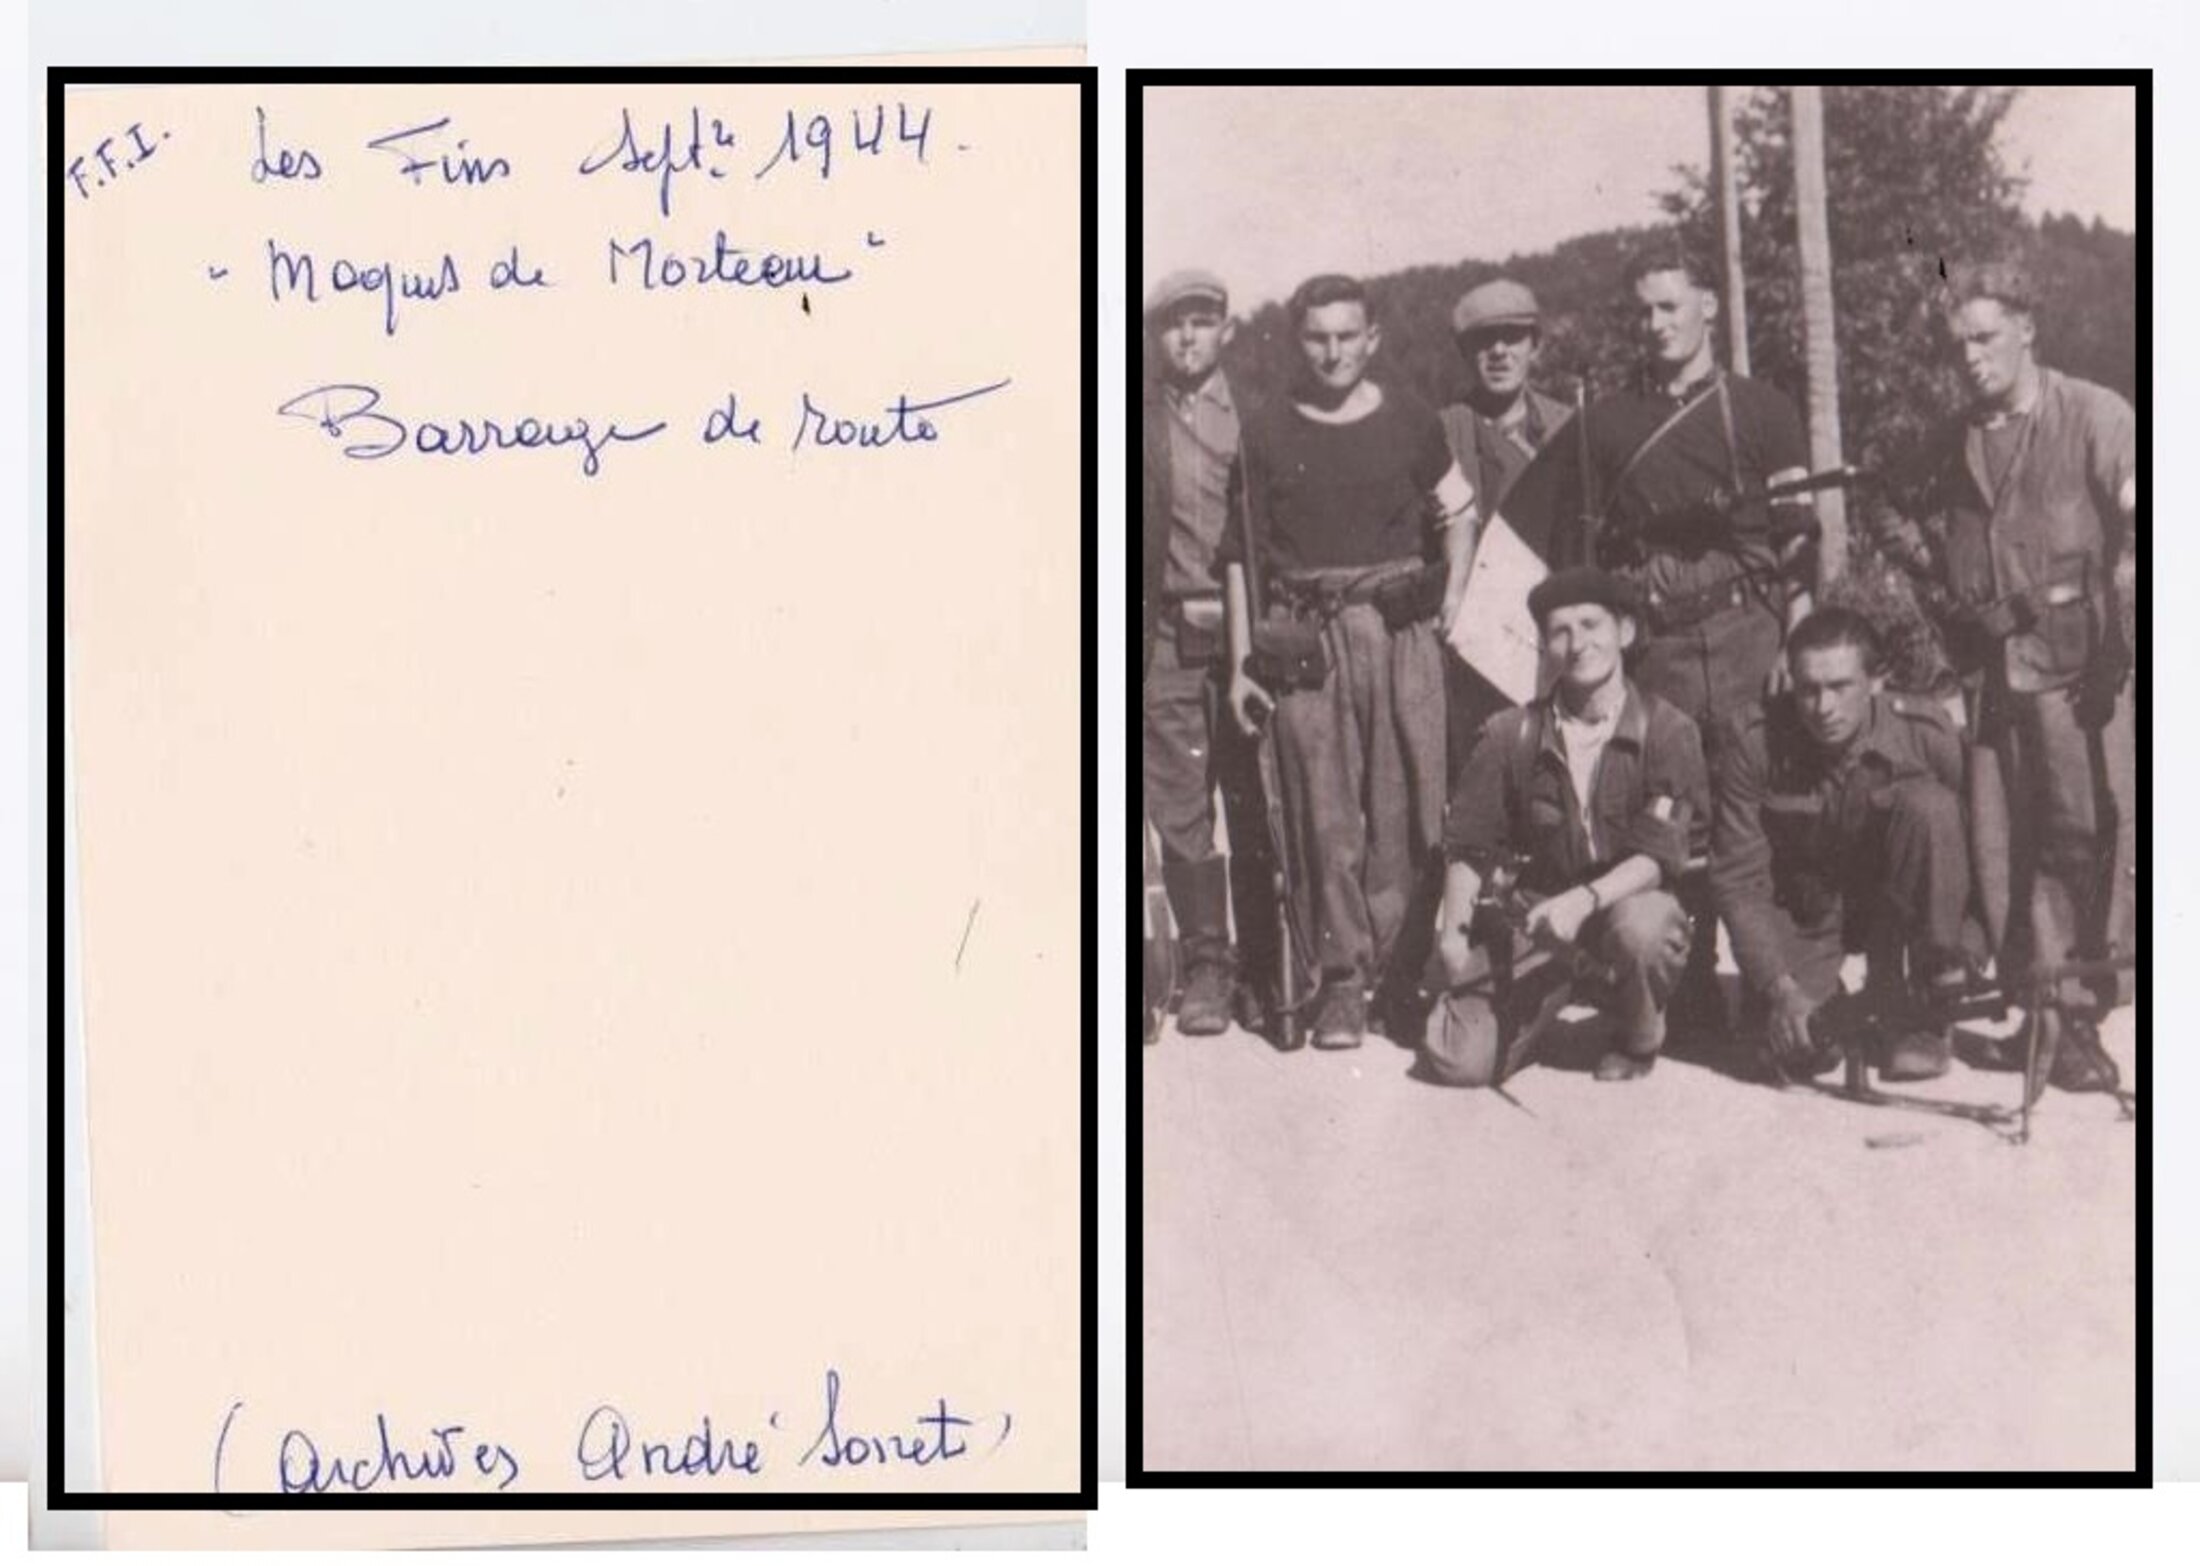 F.F.I. Les Fins Septbre 1944.
"Maquis de Morteau"
Barrage de route
(Archives André Sorret)